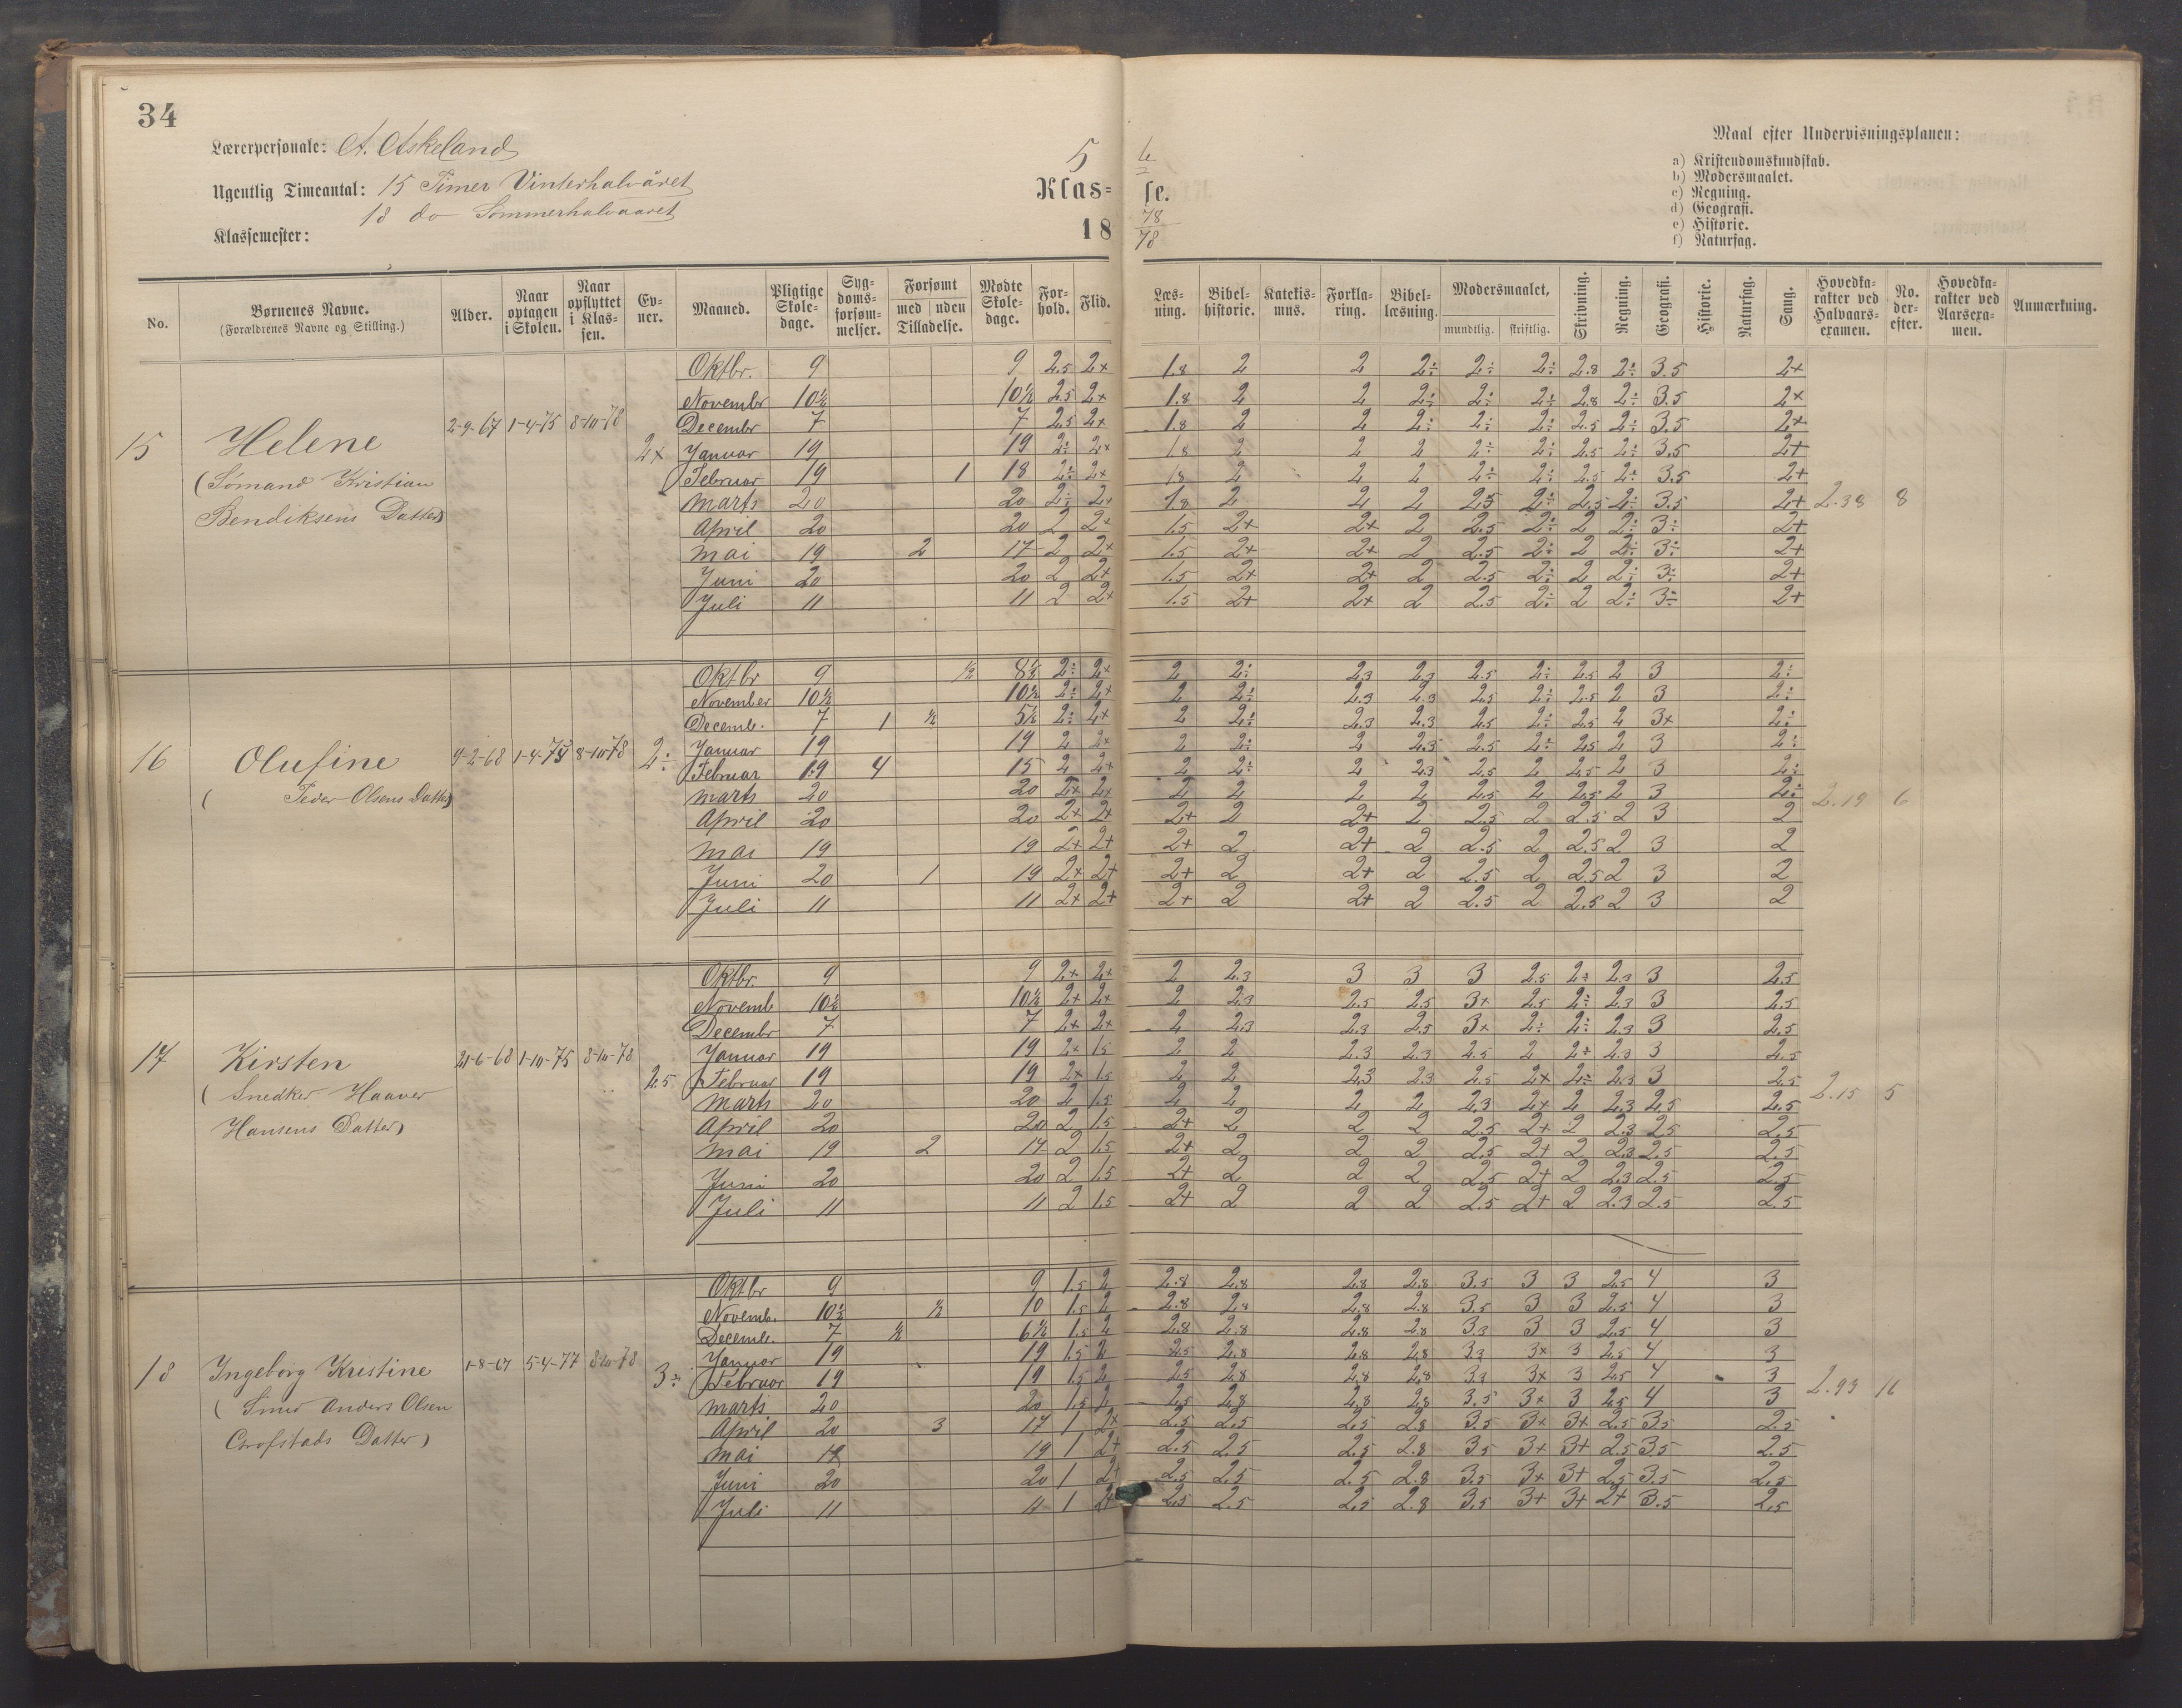 34
Lærerpersonale: A. Askeland
Ugentlig Timeantal: 15 Timer Vinterhalvåret
18 do Sommerhalvaaret
Klassemester:
5
Klas= se.
18 78
78
Maal efter Undervisningsplanen:
a) Kristendomskundskab.
b) Modersmaalet.
c) Regning.
d) Geografi.
e) Historie.
f) Naturfag.
No. Børnenes Navne. (Forældrenes Navne og Stilling.) Alder. Naar optagen i Skolen. Naar opflyttet i Klassen. Evner. Maaned. Pligtige Skoledage. Sygdomsforsømmelser. Forsømt med uden Tilladelse. Mødte Skoledage. Forhold. Flid. Læsning. Bibelhistorie. Katekismus. Forklaring. Bibellæsning. Modersmaalet, mundtlig. skriftlig. Skrivning. Regning. Geografi. Historie. Naturfag. Sang. Hovedkarakter ved Halvaarsexamen. No. derefter. Hovedkarakter ved Aarsexamen. Anmærkning.
15 Helene
(Sömand Kristian
Bendiksens Datter)
2-9-67 1-4-75 8-10-78 2+
Oktbr. 9 9 2.5 2+ 1.8 2 2 2÷ 2÷ 2÷ 2.8 2÷ 3.5 2+
Novembr 10½ 10½ 2.5 2+ 1.8 2 2 2÷ 2÷ 2÷ 2.8 2÷ 3.5 2+
Decembr 7 7 2.5 2+ 1.8 2 2 2÷ 2÷ 2÷ 2.5 2÷ 3.5 2+
Januar 19 19 2÷ 2+ 1.8 2 2 2 2÷ 2÷ 2.5 2÷ 3.5 2+
Februar 19 1 18 2÷ 2+ 1.8 2 2 2 2÷ 2÷ 2.5 2÷ 3.5 2+
Marts 20 20 2÷ 2+ 1.8 2 2 2 2.5 2÷ 2.5 2÷ 3.5 2+ 2.38 8
April 20 20 2 2+ 1.5 2+ 2+ 2 2.5 2÷ 2 2÷ 3÷ 2+
Mai 19 2 17 2 2+ 1.5 2+ 2+ 2 2.5 2÷ 2 2÷ 3÷ 2+
Juni 20 20 2 2+ 1.5 2+ 2+ 2 2.5 2÷ 2 2÷ 3÷ 2+
Juli 11 11 2 2+ 1.5 2+ 2+ 2 2.5 2÷ 2 2÷ 3÷ 2+
16 Olufine
( Peder Olsens Datter)
9-2-68 8-10-78 2÷
Oktbr 9 ½ 8½ 2÷ 2+ 2 2÷ 2.3 2.3 2.5 2÷ 2.5 2 3 2÷
November 10½ 10½ 2÷ 2+ 2 2÷ 2.3 2.3 2.5 2÷ 2.5 2 3 2÷
Decemb. 7 1 ½ 5½ 2÷ 2+ 2 2÷ 2.3 2.3 2.5 2÷ 2.5 2 3+ 2÷
Januar 19 19 2 2+ 2 2÷ 2 2.3 2.5 2÷ 2.5 2 3 2÷
Februar 19 4 15 2 2+ 2 2÷ 2 2.3 2.5 2 2.5 2 3 2÷
Marts 20 20 2+ 2+ 2 2 2 2 2.5 2 2.5 2 3 2÷ 2.19 6
April 20 20 2+ 2+ 2+ 2 2+ 2 2.5 2 2.5 2 3 2
Mai 19 19 2+ 2+ 2+ 2 2+ 2 2.5 2 2.5 2 3 2
Juni 20 1 19 2+ 2+ 2+ 2 2+ 2 2.5 2 2.5 2 3 2
Juli 11 11 2+ 2+ 2+ 2 2+ 2 2.5 2 2.5 2 3 2
17 Kirsten
(Snedker Haaver
Hansens Datter)
21-6-68 1-10-75 8-10-78 2.5
Oktbr. 9 9 2+ 2+ 2 2.3 3 3 3 2.5 2÷ 2.3 3 2.5
Novemb 10½ 10½ 2+ 2+ 2 2.3 2.5 2.5 3+ 2.5 2÷ 2.3 3 2.5
Decembr 7 7 2+ 2+ 2 2.3 2.3 2.5 3+ 2÷ 2÷ 2.3 3 2.5
Januar 19 19 2+ 1.5 2 2 2.3 2.3 2.5 2 2+ 2.3 3 2.5
Februar 19 19 2+ 1.5 2 2 2.3 2.3 2.5 2+ 2÷ 2.3 3 2.5
Marts 20 20 2 1.5 2 2 2 2 2.3 2+ 2 2.3 2.5 2.5 2.15 5
April 20 20 2 1.5 2+ 2 2 2 2.5 2+ 2 2.3 2.5 2.5
Mai 19 2 17 2 1.5 2+ 2 2 2 2.5 2+ 2 2.3 2.5 2.5
Juni 20 20 2 1.5 2+ 2 2 2 2.5 2+ 2 2.3 2.5 2.5
Juli 11 11 2 1.5 2+ 2 2 2 2.5 2+ 2 2.3 2.5 2.5
18 Ingeborg Kristine
(Smed Anders Olsen
Grofstads Datter)
1-8-67 5-4-77 8-10-78 3÷
Oktbr 9 9 1.5 2 2.8 2.8 2.8 2.8 3.5 3 3 2.5 4 3
Novemb. 10½ ½ 10 1.5 2 2.8 2.8 2.8 2.8 3.5 3 3 2.5 4 3
Decemb. 7 ½ 6½ 1.5 2 2.8 2.8 2.8 2.8 3.3 3 3 2.5 4 3
Januar 19 19 1.5 2 2.5 2.8 2.8 2.8 3.3 3+ 3 2.5 4 3
Februar 19 19 1.5 2 2.5 2.8 2.8 2.8 3.3 3+ 3 2.5 4 3
Marts 20 20 1.5 2 2.5 2.8 2.8 2.8 3.5 3+ 3 2.5 4 3 2.93 16
April 20 3 17 1 2+ 2.5 2.5 2.5 2.8 3.5 3+ 3+ 2.5 3.5 2.5
Mai 19 19 1 2+ 2.5 2.5 2.5 2.8 3.5 3+ 3+ 2.5 3.5 2.5
Juni 20 20 1 2+ 2.5 2.5 2.5 2.8 3.5 3+ 3+ 2.5 3.5 2.5
Juli 11 11 1 2+ 2.5 2.5 2.5 2.8 3.5 3+ 3+ 2+ 3.5 2.5